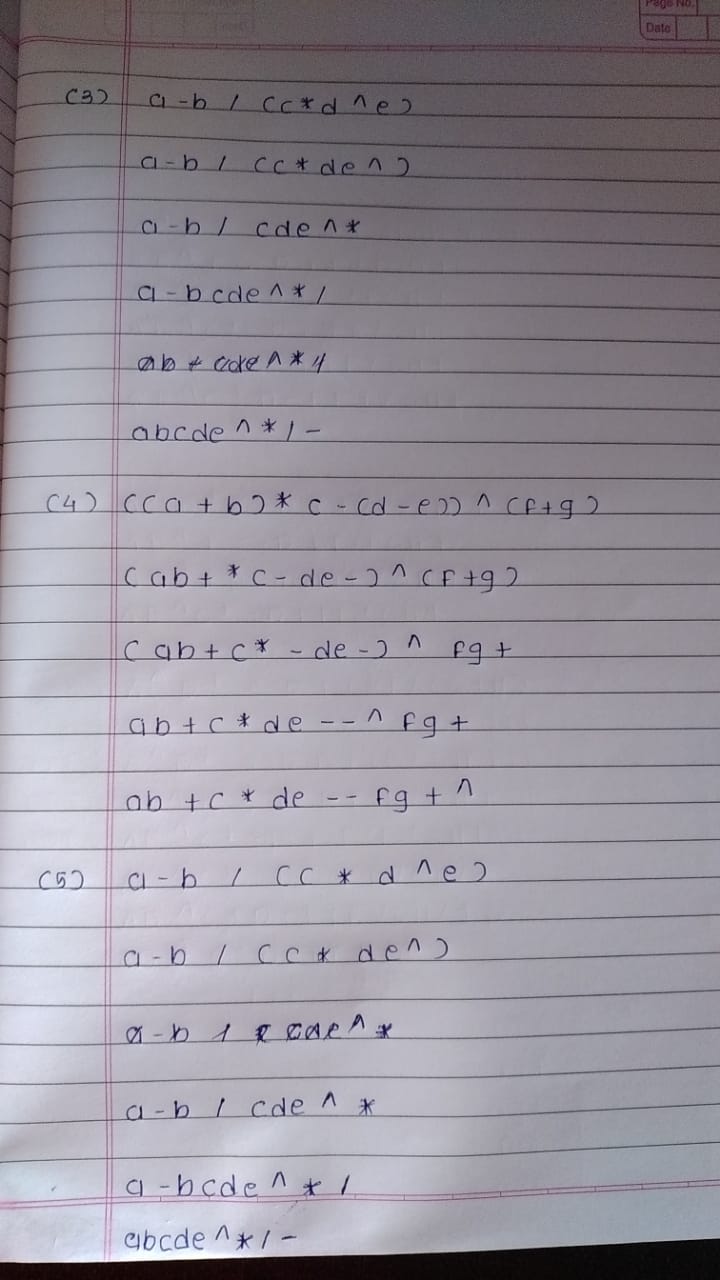 Page No.
Date
(3) a-b / (c*d^e)
a-b / (c*de^)
a-b / cde^*
a-bcde^*/
abcde^*/-
(4) ((a+b)*c-(d-e))^(f+g)
(ab+*c-de-)^(f+g)
(ab+c*-de-)^ fg+
ab+c*de--^fg+
ab+c*de--fg+^
(5) a-b / (c*d^e)
a-b / (c*de^)
a-b / cde^*
a-b / cde^*
a-bcde^*/
abcde^*/-